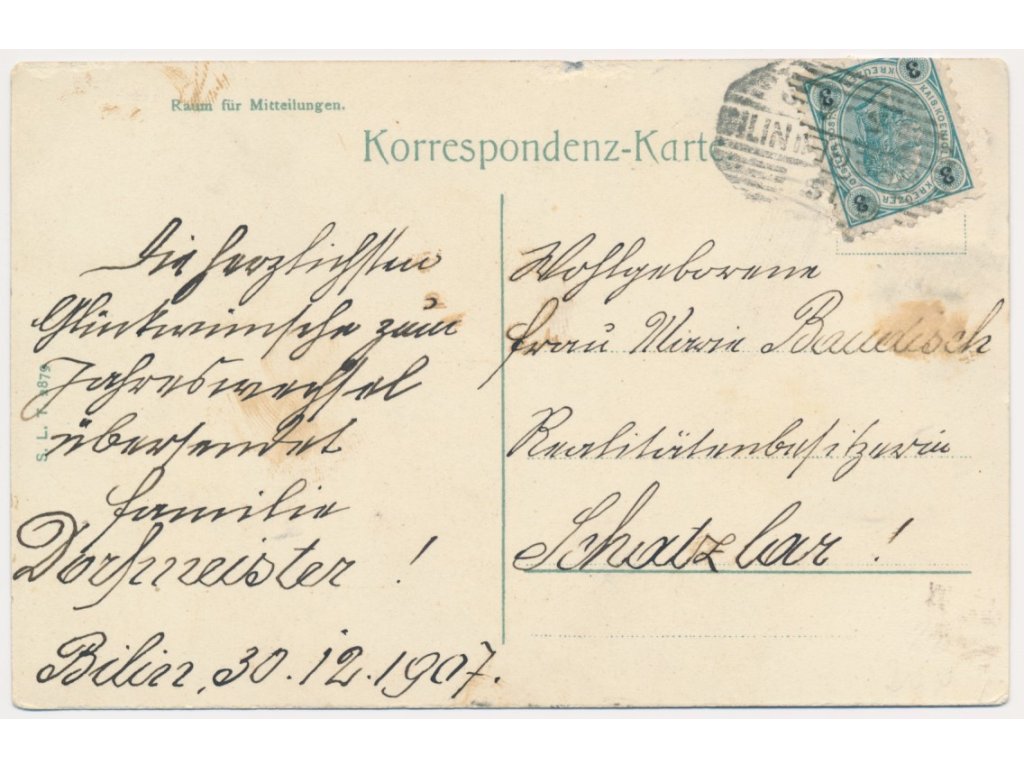 Raum für Mitteilungen.
Korrespondenz-Karte
BILIN
3
3
3
3
KREUZER
Die herzlichsten
Glückwünsche zum
Jahreswechsel
übersendet
Familie
Dorfmeister!
Bilin, 30.12.1907.
Wohlgeborene
Frau Marie Baudisch
Realitätenbesitzerin
Schatzlar!
S. L. 7. 2879